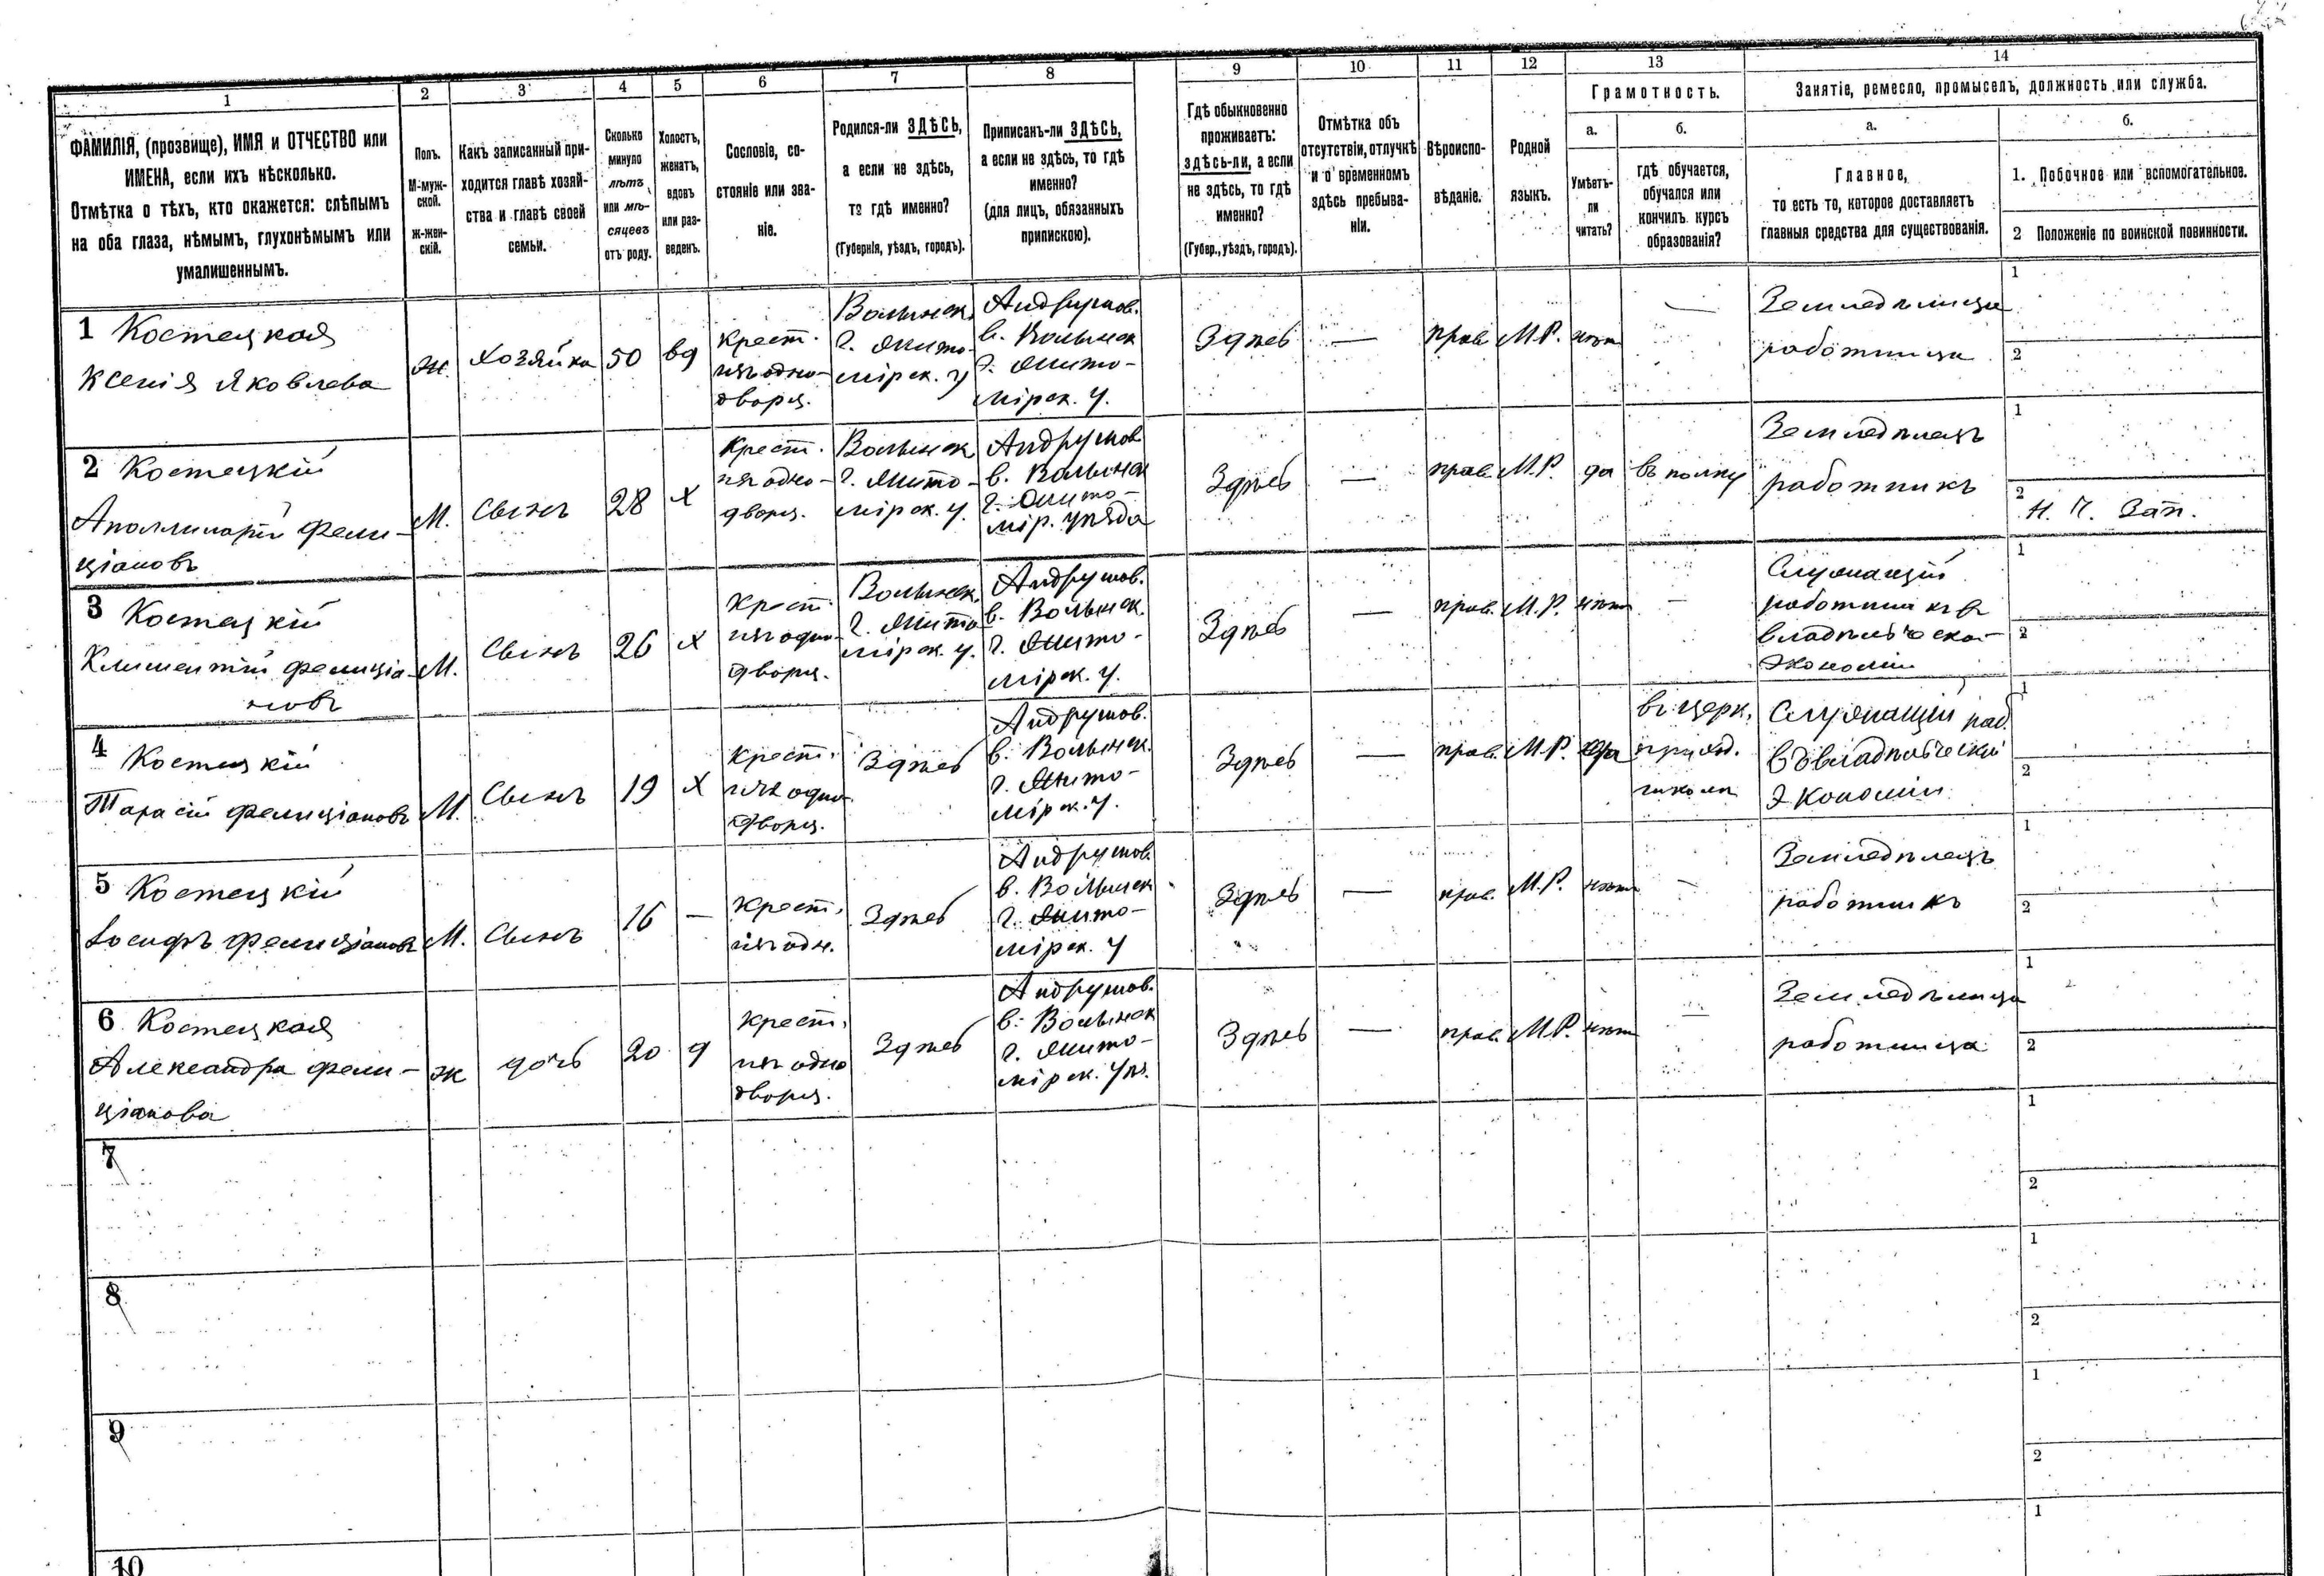 1
2
3
4
5
6
7
8
9
10
11
12
13
14
ФАМИЛІЯ, (прозвище), ИМЯ и ОТЧЕСТВО или
ИМЕНА, если ихъ нѣсколько.
Отмѣтка о тѣхъ, кто окажется: слѣпымъ
на оба глаза, нѣмымъ, глухонѣмымъ или
умалишеннымъ.
Полъ.
М-муж-
ской.
Ж-жен-
скій.
Какъ записанный при-
ходится главѣ хозяй-
ства и главѣ своей
семьи.
Сколько
минуло
лѣтъ
или мѣ-
сяцевъ
отъ роду.
Холостъ,
женатъ,
вдовъ
или раз-
веденъ.
Сословіе, со-
стояніе или зва-
ніе.
Родился-ли ЗДѢСЬ,
а если не здѣсь,
то гдѣ именно?
(Губернія, уѣздъ, городъ).
Приписанъ-ли ЗДѢСЬ,
а если не здѣсь, то гдѣ
именно?
(для лицъ, обязанныхъ
припискою).
Гдѣ обыкновенно
проживаетъ:
здѣсь-ли, а если
не здѣсь, то гдѣ
именно?
(Губер., уѣздъ, городъ).
Отмѣтка объ
отсутствіи, отлучкѣ
и о временномъ
здѣсь пребыва-
ніи.
Вѣроиспо-
вѣданіе.
Родной
языкъ.
Грамотность.
а.
Умѣетъ-
ли
читать?
б.
гдѣ обучается,
обучался или
кончилъ курсъ
образованія?
Занятіе, ремесло, промыселъ, должность или служба.
а.
Главное,
то есть то, которое доставляетъ
главныя средства для существованія.
б.
1. Побочное или вспомогательное.
2 Положеніе по воинской повинности.
1 Костецкая
Ксенія Яковлева
ж.
Хозяйка
50
вд
крест.
изъ одно-
дворц.
Волынск.
г. Жито-
мірск. у
Андрушов.
в. Волынск
г. Жито-
мірск. у.
Здѣсь
—
прав.
М.Р.
нѣт
—
Земледѣлица
работница
1
2
2 Костецкій
Аполлинарій Фели-
ціановъ
М.
Сынъ
28
х
крест.
изъ одно-
дворц.
Волынск
г. Жито-
мірск. у.
Андрушов
в. Волынск
г. Жито-
мір. уѣзда
Здѣсь
—
прав.
М.Р.
да
въ полку
Земледѣлецъ
работникъ
1
2
Н. Ч. Зап.
3 Костецкій
Климентій Фелиціа-
новъ
М.
Сынъ
26
х
крест.
изъ одно-
дворц.
Волынск.
г. Жито-
мірск. у.
Андрушов.
в. Волынск.
г. Жито-
мірск. у.
Здѣсь
—
прав.
М.Р.
нѣт
—
Служащій
работник въ
владѣльческ.
экономіи
1
2
4 Костецкій
Тарасій Фелиціановъ
М.
Сынъ
19
х
крест.
изъ одно-
дворц.
Здѣсь
Андрушов.
в. Волынск.
г. Жито-
мірск. у.
Здѣсь
—
прав.
М.Р.
да
въ церк.
приход.
школѣ
Служащій раб.
въ владѣльческій
Экономіи
1
2
5 Костецкій
Іосифъ Фелиціановъ
М.
Сынъ
16
—
крест.
изъ одн.
Здѣсь
Андрушов.
в. Волынск
г. Жито-
мірск. у
Здѣсь
—
прав.
М.Р.
нѣт
—
Земледѣлецъ
работникъ
1
2
6 Костецкая
Александра Фели-
ціанова
ж
дочь
20
д
крест.
изъ одно
дворц.
Здѣсь
Андрушов.
в. Волынск
г. Жито-
мірск. уѣз.
Здѣсь
—
прав.
М.Р.
нѣт
—
Земледѣлица
работница
1
2
7
1
2
8
1
2
9
1
2
10
1